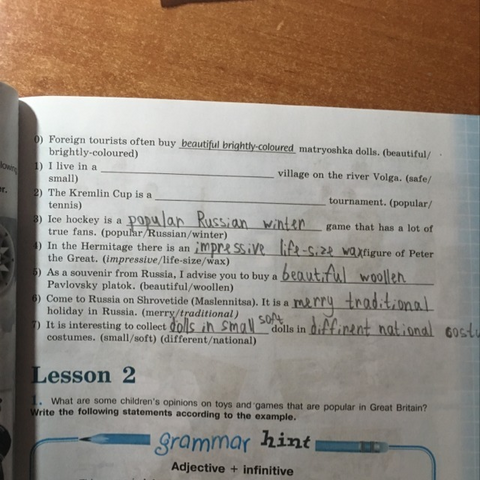 0) Foreign tourists often buy beautiful brightly-coloured matryoshka dolls. (beautiful/
brightly-coloured)
1) I live in a village on the river Volga. (safe/
small)
2) The Kremlin Cup is a tournament. (popular/
tennis)
3) Ice hockey is a popular Russian winter game that has a lot of
true fans. (popular/Russian/winter)
4) In the Hermitage there is an impressive life-size wax figure of Peter
the Great. (impressive/life-size/wax)
5) As a souvenir from Russia, I advise you to buy a beautiful woollen
Pavlovsky platok. (beautiful/woollen)
6) Come to Russia on Shrovetide (Maslennitsa). It is a merry traditional
holiday in Russia. (merry/traditional)
7) It is interesting to collect dolls in small soft dolls in diffinent national costu
costumes. (small/soft) (different/national)
Lesson 2
1. What are some children's opinions on toys and games that are popular in Great Britain?
Write the following statements according to the example.
grammar hint
Adjective + infinitive